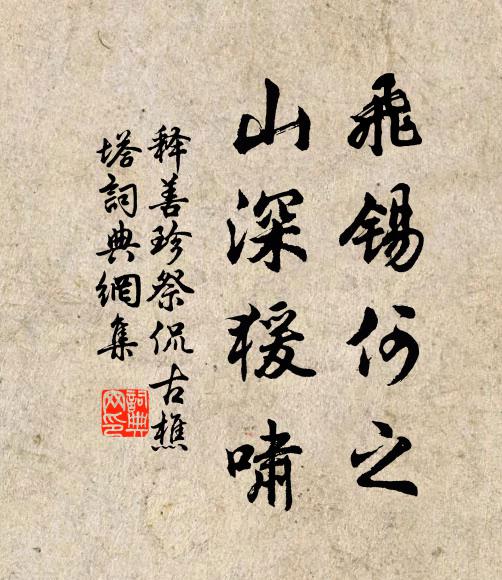 飛錫何之
山深猨嘯
释善珍祭侃古樵
塔詞典網集
詞典
网印